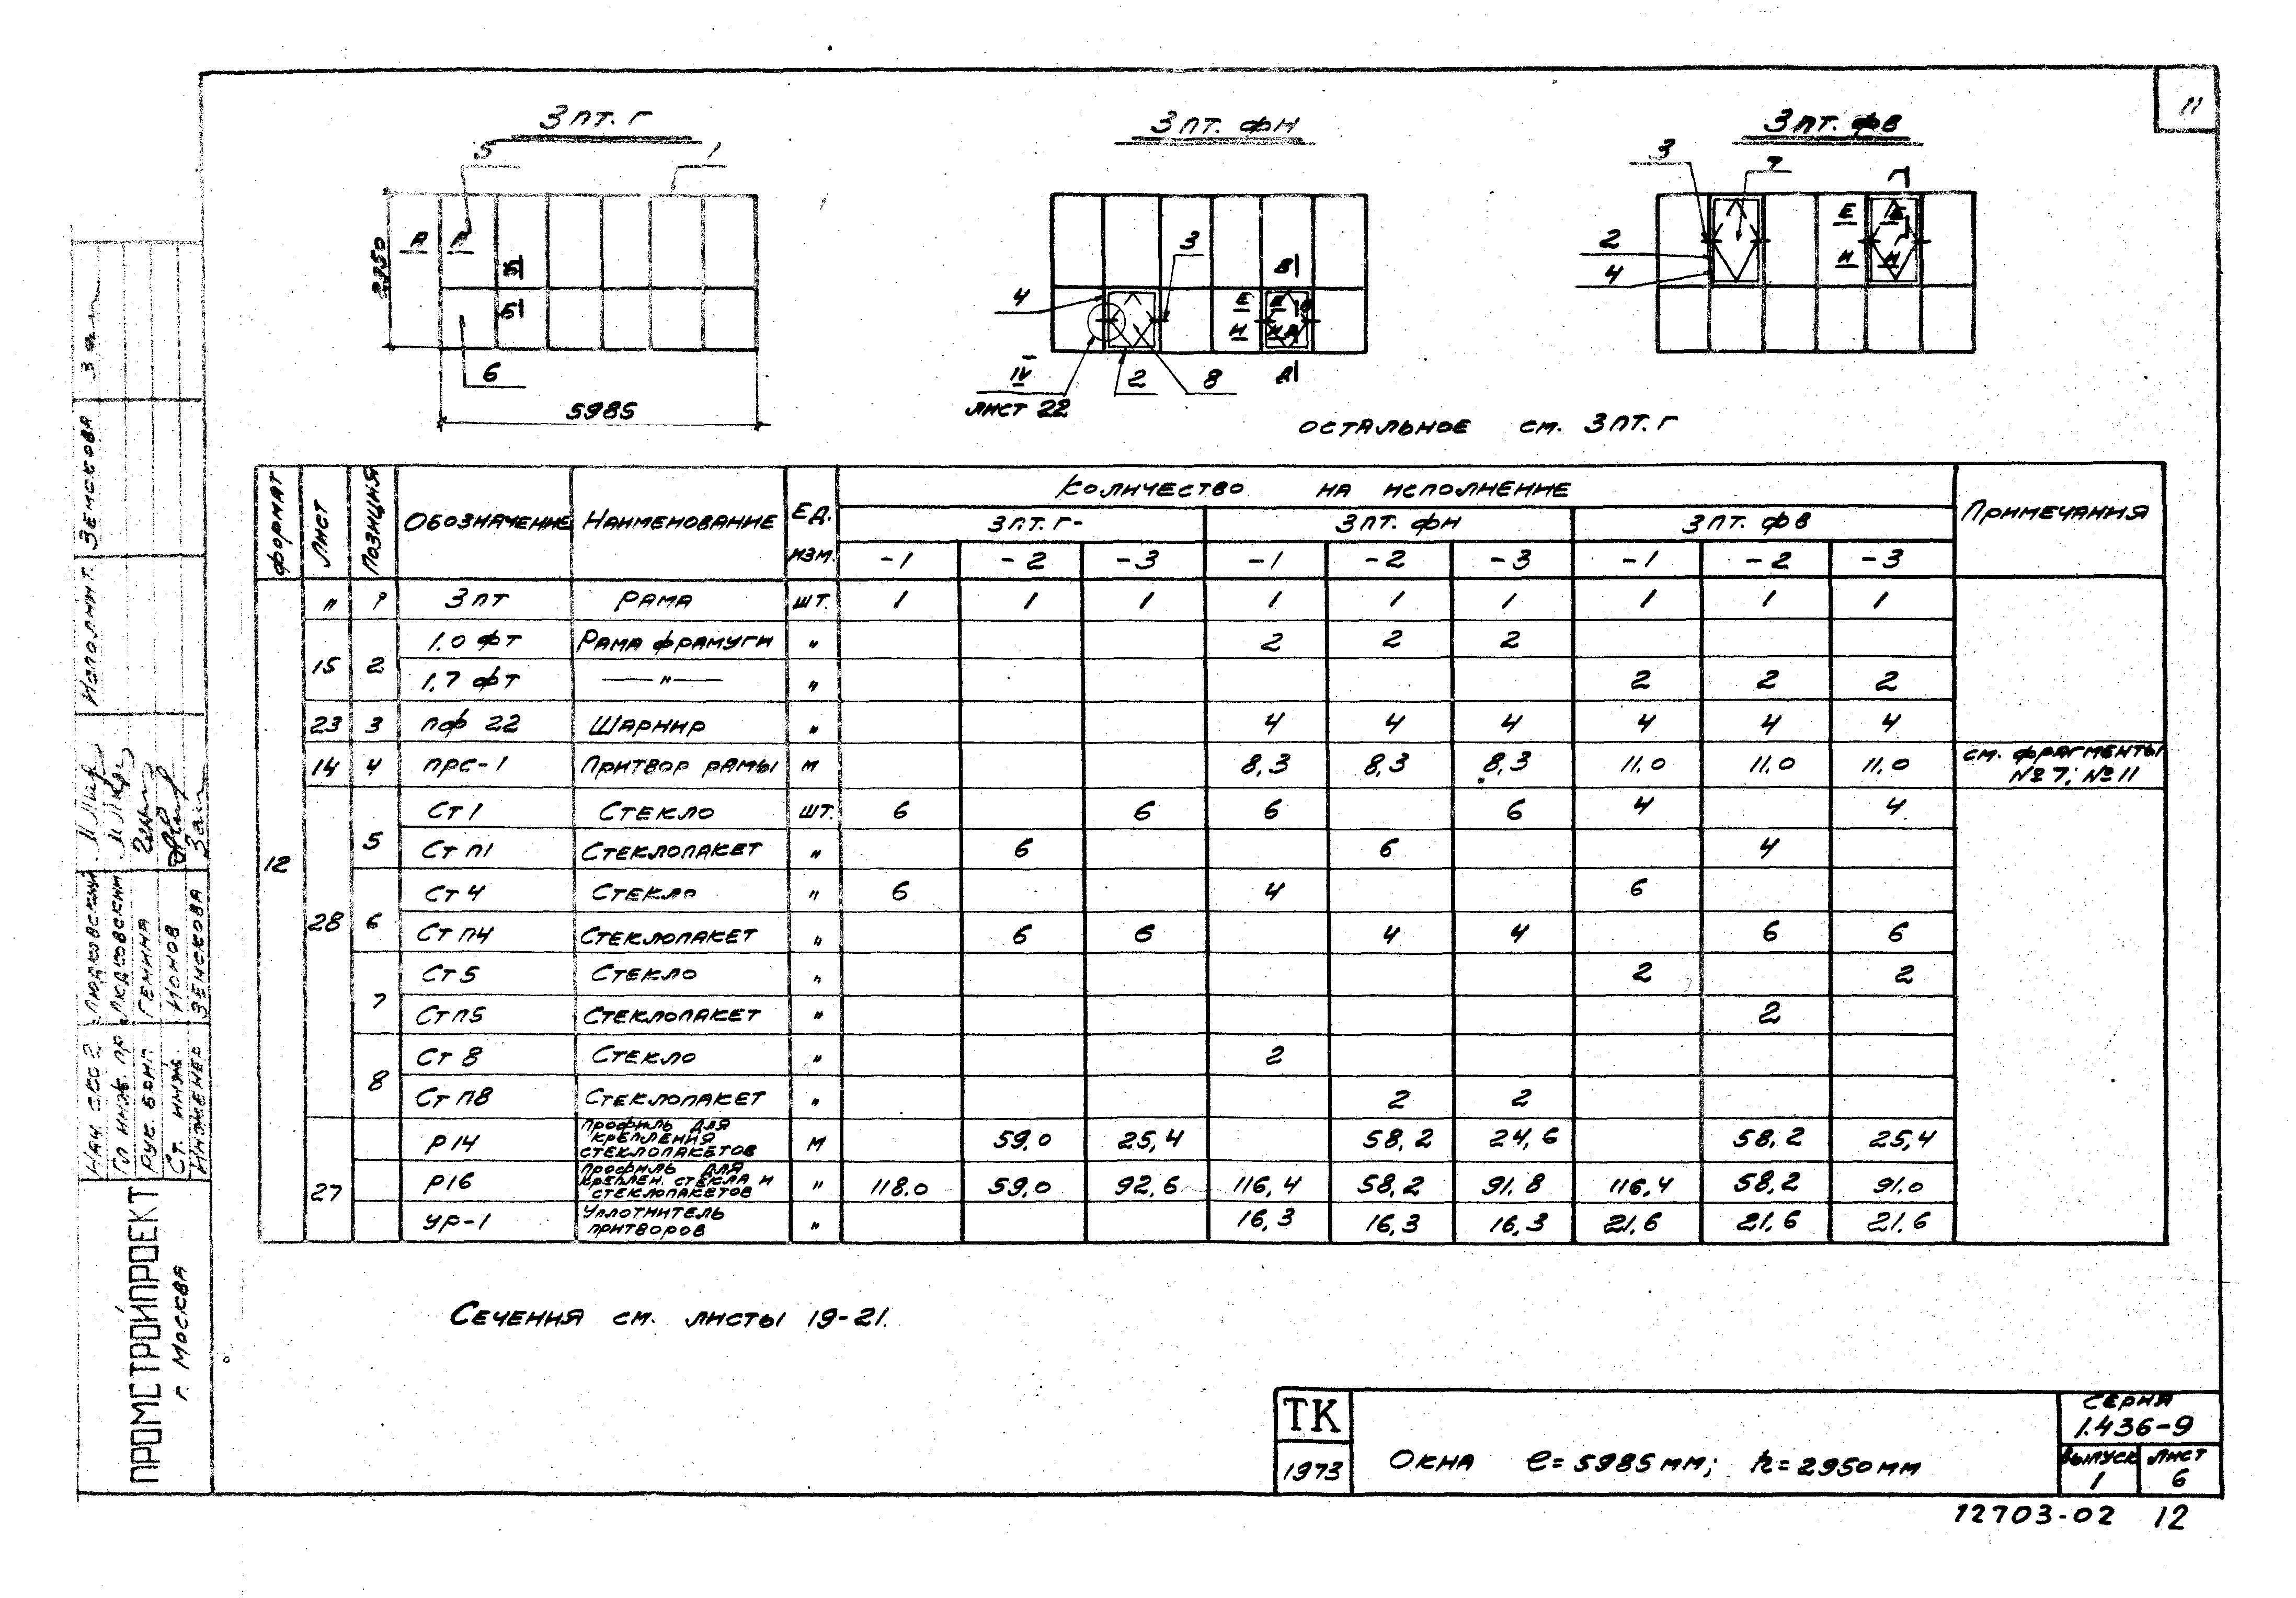 11
3 пт. г
3 пт. фн
3 пт. фв
5
1
2950
А
А
Б
Б
6
5985
3
4
В
Е
Е
Н
Н
А
IV
2
8
лист 22
3
7
Г
2
4
Е
Е
Н
Н
остальное см. 3 пт. г
формат
лист
позиция
Обозначение
Наименование
ед. изм.
Количество на исполнение
Примечания
3 п.т. г-
3 пт. фн
3 пт. фв
-1 -2 -3 -1 -2 -3 -1 -2 -3
12
11 1 3 пт Рама шт. 1 1 1 1 1 1 1 1 1
15 2 1.0 фт Рама фрамуги " 2 2 2
1.7 фт — " — " 2 2 2
23 3 пф 22 Шарнир " 4 4 4 4 4 4
14 4 прс-1 Притвор рамы м 8,3 8,3 8,3 11.0 11.0 11.0 см. фрагменты
№ 7, № 11
28 5 Ст 1 Стекло шт. 6 6 6 6 4 4
Ст п1 Стеклопакет " 6 6 4
6 Ст 4 Стекло " 6 4 6
Ст п4 Стеклопакет " 6 6 4 4 6 6
7 Ст 5 Стекло " 2 2
Ст п5 Стеклопакет " 2
8 Ст 8 Стекло " 2
Ст п8 Стеклопакет " 2 2
27 Р14 Профиль для крепления стеклопакетов м 59,0 25,4 58,2 24,6 58,2 25,4
Р16 Профиль для креплен. стекла и стеклопакетов " 118.0 59,0 92,6 116,4 58,2 91.8 116,4 58,2 91.0
ур-1 Уплотнитель притворов " 16,3 16,3 16,3 21,6 21,6 21.6
Сечения см. листы 19-21.
ТК
1973
Окна ℓ = 5985 мм; h = 2950 мм
Серия
1.436-9
Выпуск
1
лист
6
12703-02 12
Исполнит. Земскова
Нач. СКО 2 Людковский
Гл инж. пр. Людковский
Рук. бриг. Генкина
Ст. инж. Ионов
Инженер Земскова
ПРОМСТРОЙПРОЕКТ
г. Москва